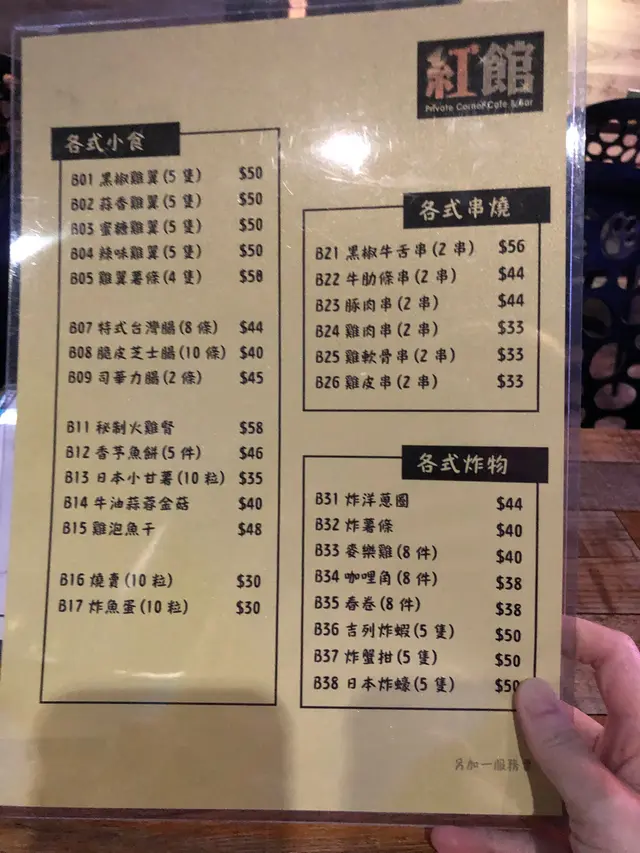 紅館
Private Corner Cafe & Bar
各式小食
B01 黑椒雞翼(5 隻) $50
B02 蒜香雞翼(5 隻) $50
B03 蜜糖雞翼(5 隻) $50
B04 辣味雞翼(5 隻) $50
B05 雞翼薯條(4 隻) $58
B07 特式台灣腸(8 條) $44
B08 脆皮芝士腸(10 條) $40
B09 司華力腸(2 條) $45
B11 秘制火雞腎 $58
B12 香芋魚餅(5 件) $46
B13 日本小甘薯(10 粒) $35
B14 牛油蒜蓉金菇 $40
B15 雞泡魚干 $48
B16 燒賣(10 粒) $30
B17 炸魚蛋(10 粒) $30
各式串燒
B21 黑椒牛舌串(2 串) $56
B22 牛肋條串(2 串) $44
B23 豚肉串(2 串) $44
B24 雞肉串(2 串) $33
B25 雞軟骨串(2 串) $33
B26 雞皮串(2 串) $33
各式炸物
B31 炸洋蔥圈 $44
B32 炸薯條 $40
B33 麥樂雞(8 件) $40
B34 咖哩角(8 件) $38
B35 春卷(8 件) $38
B36 吉列炸蝦(5 隻) $50
B37 炸蟹拑(5 隻) $50
B38 日本炸蠔(5 隻) $50
另加一服務費